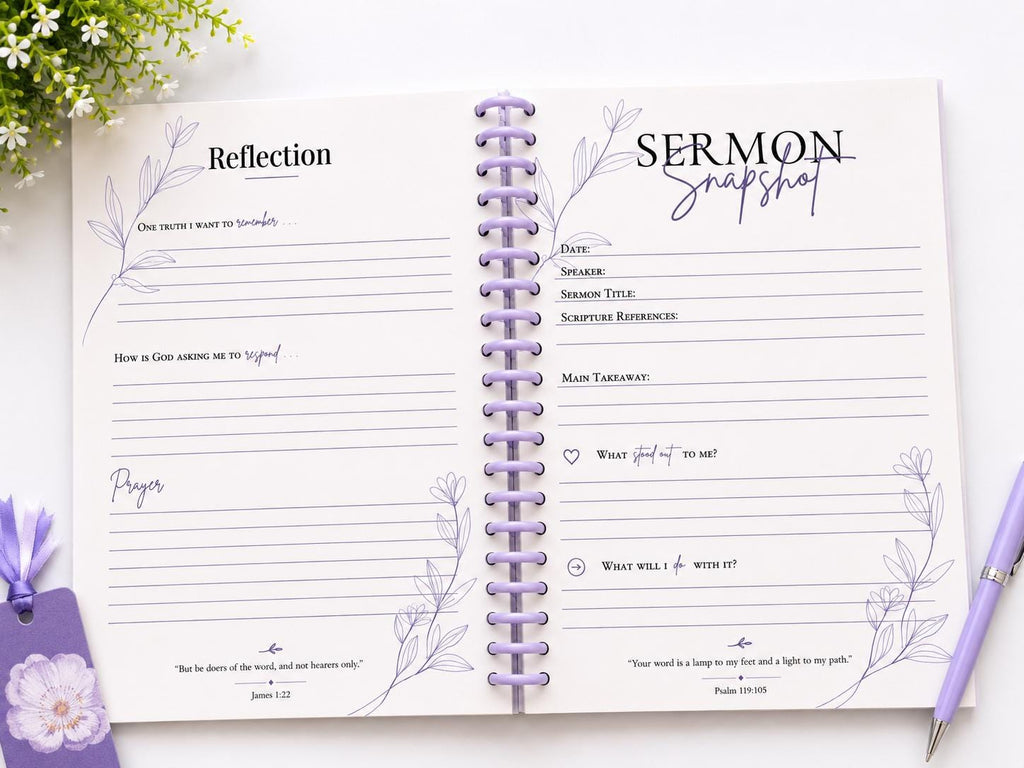 Reflection
One truth I want to remember . . .
How is God asking me to respond . . .
Prayer
“But be doers of the word, and not hearers only.”
James 1:22
SERMON
Snapshot
Date:
Speaker:
Sermon Title:
Scripture References:
Main Takeaway:
What stood out to me?
What will I do with it?
“Your word is a lamp to my feet and a light to my path.”
Psalm 119:105